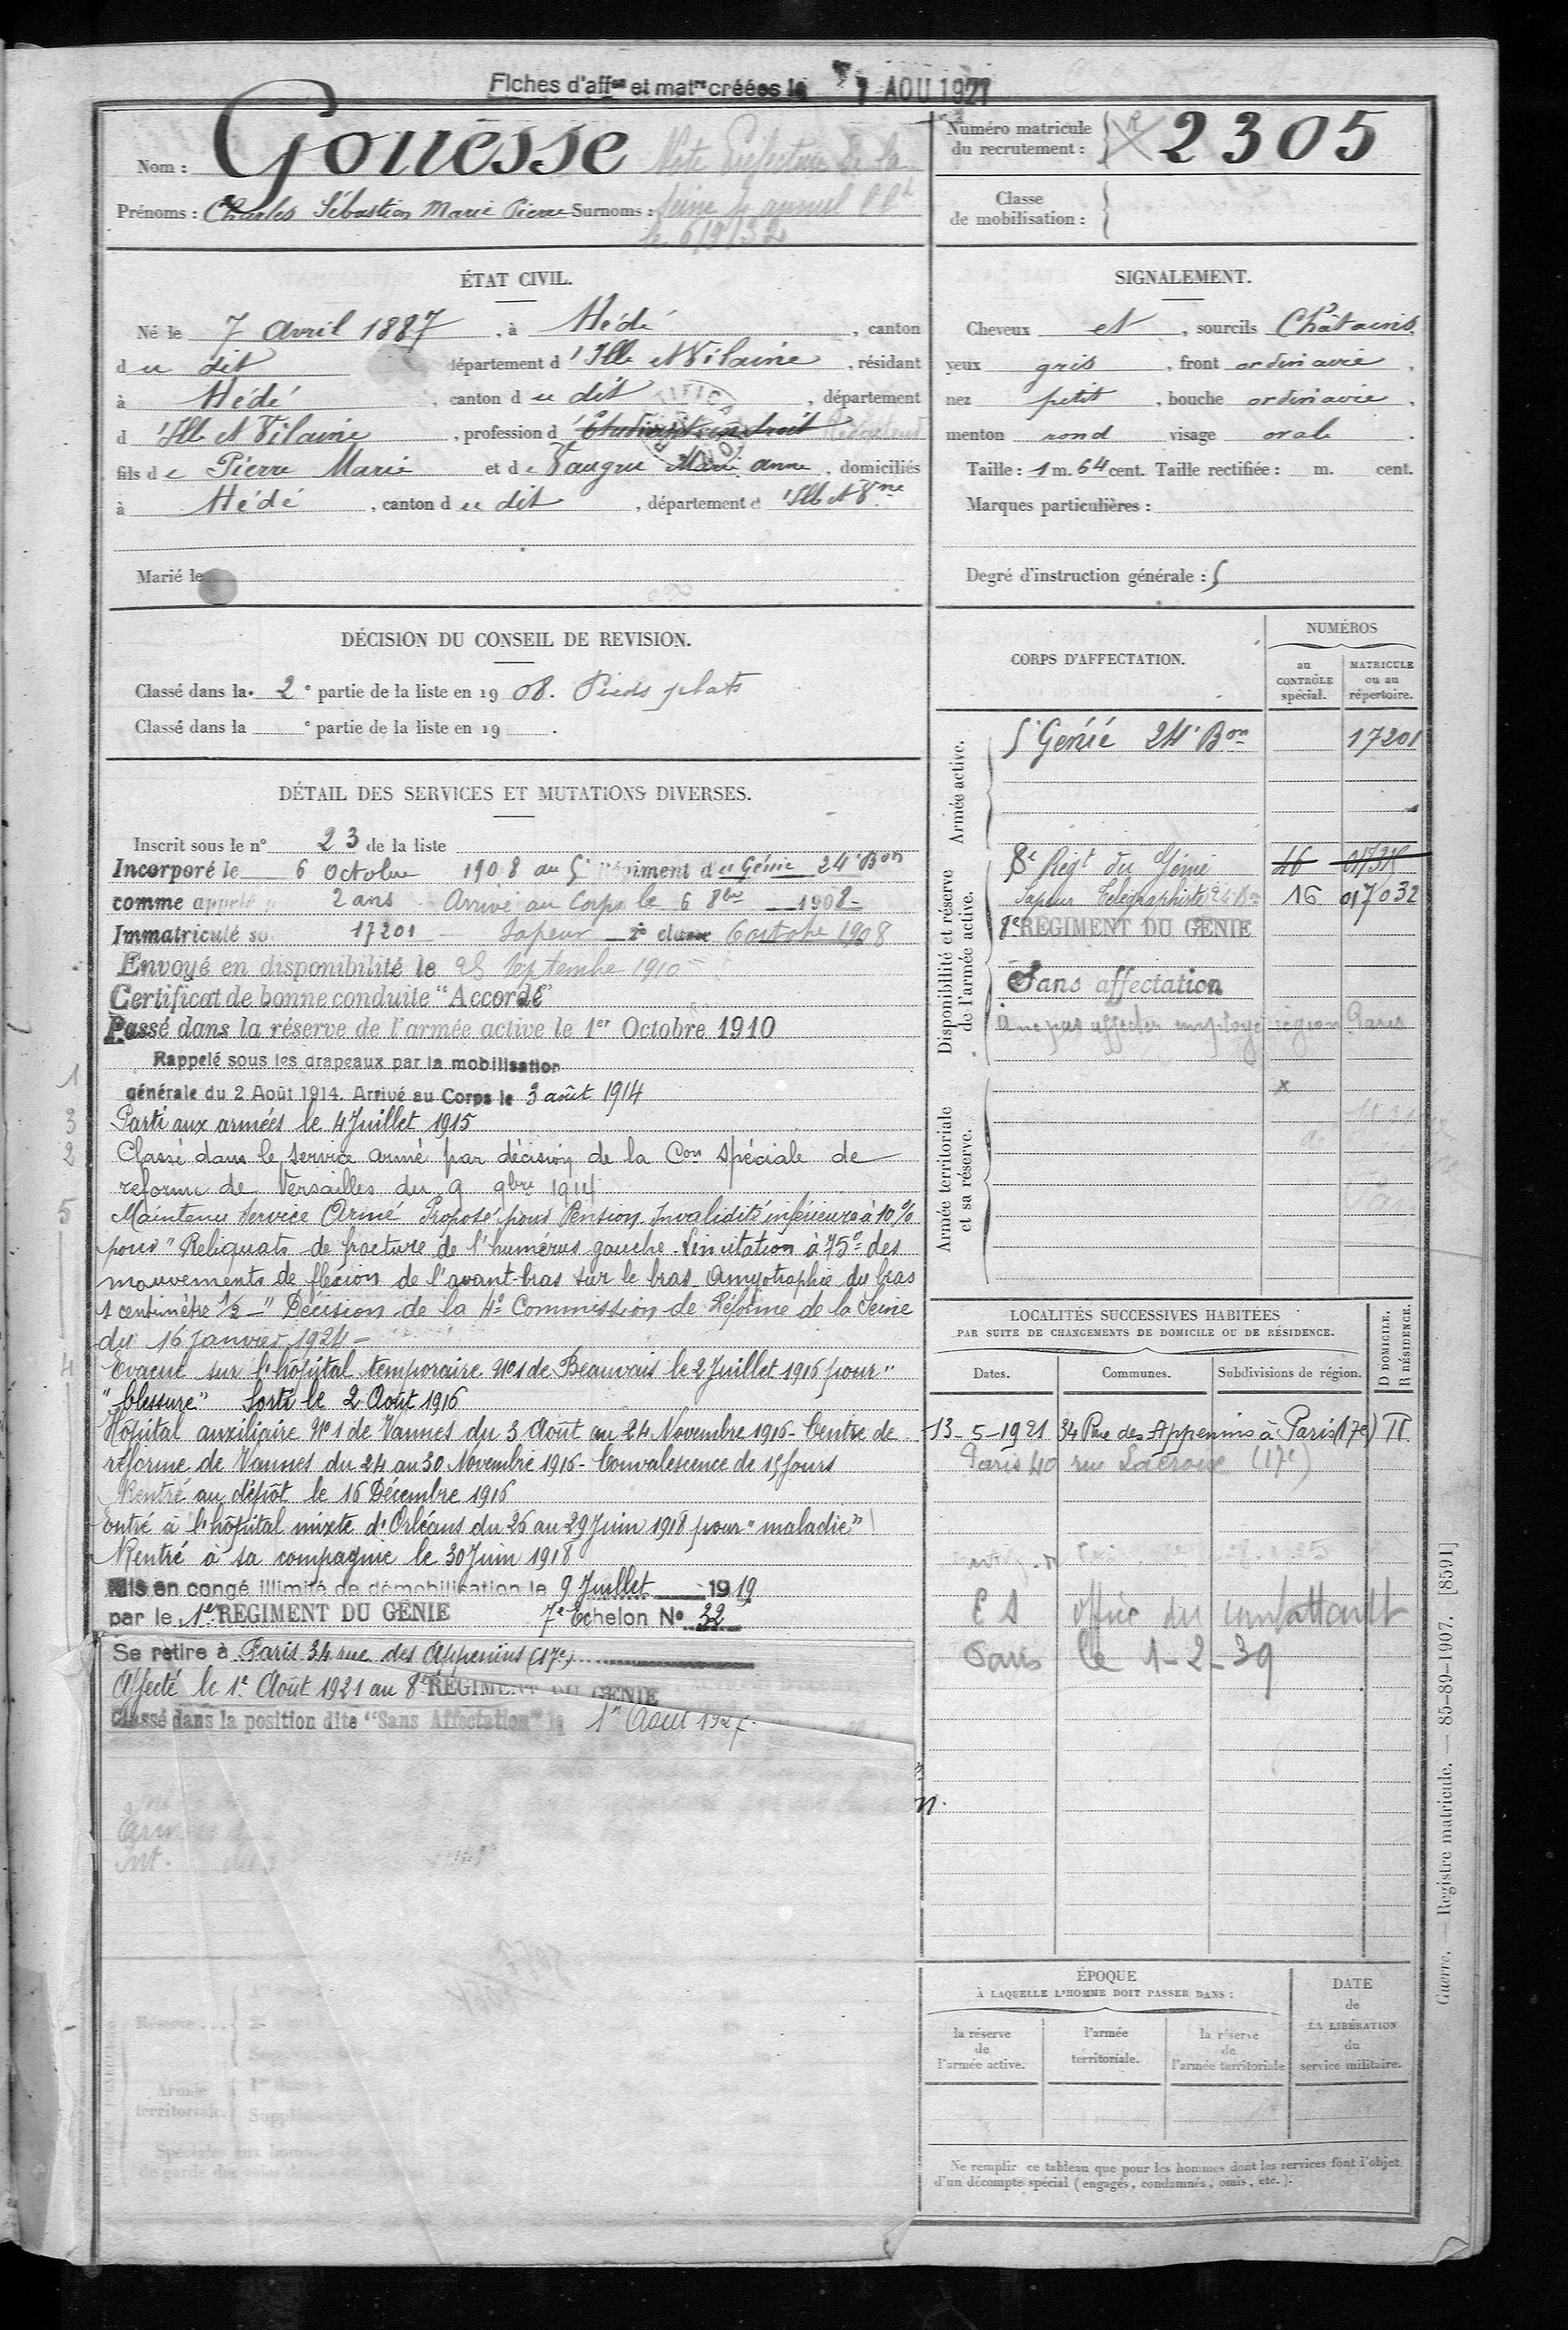 Fiches d'aff^on et mat^re créées le 7 AOU 1927
Nom : Gouësse Note Préfecture de la
Prénoms : Charles Sébastien Marie Pierre Surnoms : Seine
le 6/9/32
Numéro matricule du recrutement : R 2305
Classe de mobilisation :
ÉTAT CIVIL.
Né le 7 Avril 1887, à Hédé, canton
du dit département d'Ille et Vilaine, résidant
à Hédé, canton du dit, département
d'Ille et Vilaine, profession d'Étudiant en droit Rédacteur
fils de Pierre Marie et de Vaugru Marie anne, domiciliés
à Hédé, canton du dit, département d'Ill et V^ne
Marié le
SIGNALEMENT.
Cheveux et, sourcils Châtains,
yeux gris, front ordinaire,
nez petit, bouche ordinaire,
menton rond visage ovale.
Taille : 1 m. 64 cent. Taille rectifiée : m. cent.
Marques particulières :
Degré d'instruction générale : 5
DÉCISION DU CONSEIL DE REVISION.
Classé dans la 2e partie de la liste en 1908. Pieds plats
Classé dans la e partie de la liste en 19 .
DÉTAIL DES SERVICES ET MUTATIONS DIVERSES.
Inscrit sous le n° 23 de la liste
Incorporé le 6 Octobre 1908 au 5e Régiment du Génie 24e Bon
comme appelé 2 ans Arrivé au Corps le 6 8bre 1908
Immatriculé so 17201 Sapeur 2e classe 6 octobre 1908
Envoyé en disponibilité le 25 Septembre 1910
Certificat de bonne conduite "Accordé"
Passé dans la réserve de l'armée active le 1er Octobre 1910
Rappelé sous les drapeaux par la mobilisation
1 générale du 2 Août 1914. Arrivé au Corps le 3 août 1914
3 Parti aux armées le 4 Juillet 1915
2 Classé dans le service armé par décision de la Con spéciale de
reforme de Versailles du 9 9bre 1914
5 Maintenu Service Armé Proposé pour Pension Invalidité inférieure à 10%
pour "Reliquats de fracture de l'humérus gauche. Limitation à 75° des
mouvements de flexion de l'avant-bras sur le bras. Amyotrophie du bras
1 centimètre 1/2 -" Décision de la 4e Commission de Réforme de la Seine
du 16 Janvier 1924 -
4 Evacué sur l'hôpital temporaire N°1 de Beauvais le 2 Juillet 1916 pour "
"blessure" Sorti le 2 Août 1916
Hôpital auxiliaire N°1 de Vannes du 3 Août au 24 Novembre 1916 - Centre de
réforme de Vannes du 24 au 30 Novembre 1916 - Convalescence de 15 Jours
Rentré au dépôt le 16 Décembre 1916
Entré à l'hôpital mixte d'Orléans du 26 au 29 Juin 1918 pour "maladie"
Rentré à sa compagnie le 30 Juin 1918
Mis en congé illimité de démobilisation le 9 Juillet 1919
par le 1er REGIMENT DU GÉNIE 7e Echelon N° 32
Se retire à Paris 34 rue des Appenins (17e)
Affecté le 1er Août 1921 au 8e REGIMENT DU GENIE
Classé dans la position dite "Sans Affectation" le 1er Août 1927.
CORPS D'AFFECTATION.
NUMÉROS
au CONTRÔLE spécial.
MATRICULE ou au répertoire.
Armée active.
5e Génie 24e Bon 17201
Disponibilité et réserve de l'armée active.
8e Régt du Génie 46
Sapeur Télégraphiste 24e Bon 16 017032
8e REGIMENT DU GENIE
Sans affectation
à ne pas affecter employé région Paris
Armée territoriale et sa réserve.
x
LOCALITÉS SUCCESSIVES HABITÉES
PAR SUITE DE CHANGEMENTS DE DOMICILE OU DE RÉSIDENCE.
Dates. Communes. Subdivisions de région. D DOMICILE. R RÉSIDENCE.
13-5-1921 34 Rue des Appenins à Paris (17e)
Paris 40 rue Lacroix (17e)
E S Office du combattant
Paris le 1-2-39
ÉPOQUE
À LAQUELLE L'HOMME DOIT PASSER DANS :
la réserve de l'armée active.
l'armée territoriale.
la réserve de l'armée territoriale
DATE de LA LIBÉRATION du service militaire.
Ne remplir ce tableau que pour les hommes dont les services font l'objet
d'un décompte spécial (engagés, condamnés, omis, etc.).
Réserve
Armée territoriale
Guerre. — Registre matricule. — 85-89-1907. [8591]